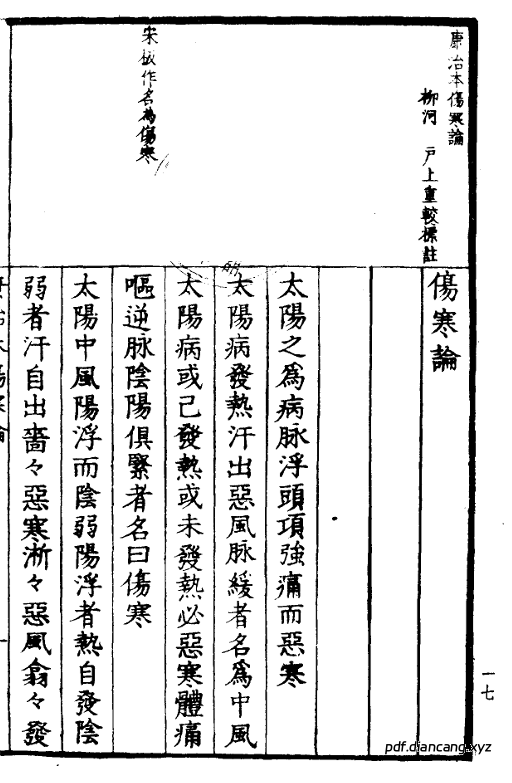 康治本傷寒論
柳河　戸上重較標註
宋板作名為傷寒
傷寒論
太陽之爲病脉浮頭項強痛而惡寒
太陽病發熱汗出惡風脉緩者名爲中風
太陽病或已發熱或未發熱必惡寒體痛
嘔逆脉陰陽俱緊者名曰傷寒
太陽中風陽浮而陰弱陽浮者熱自發陰
弱者汗自出嗇々惡寒淅々惡風翕々發
一七
pdf.diancang.xyz